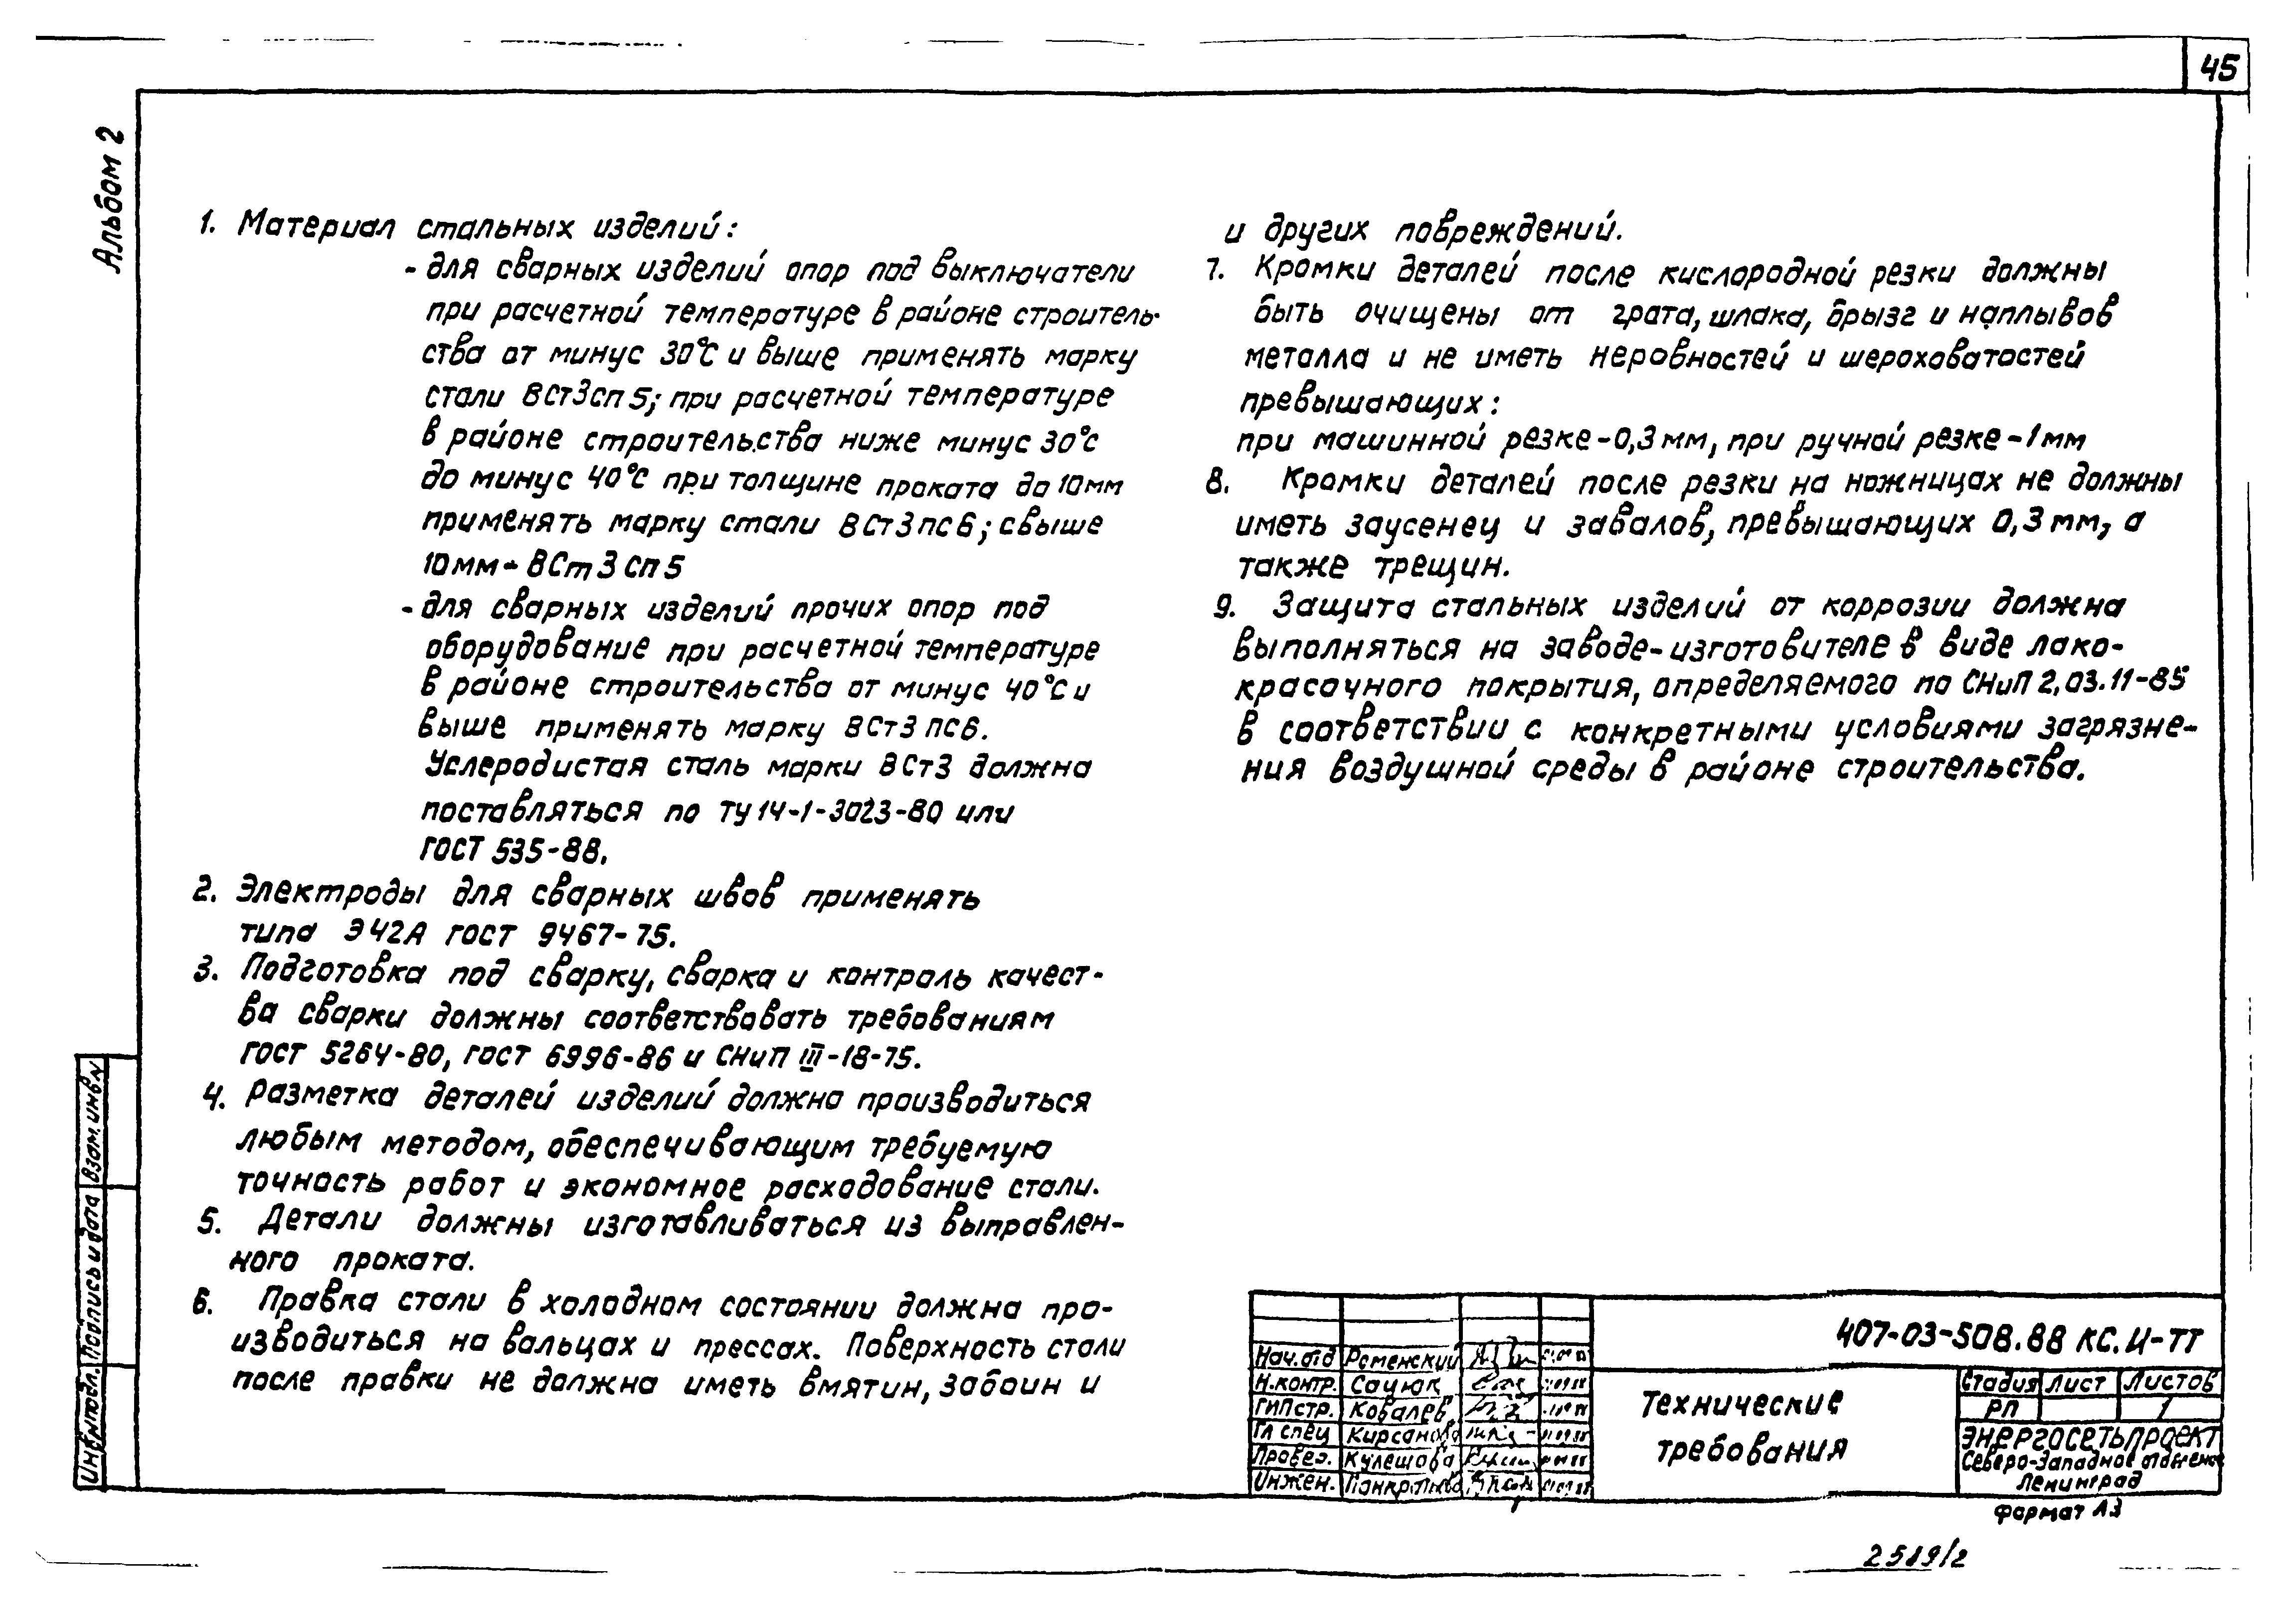 45
Альбом 2
1. Материал стальных изделий:
- для сварных изделий опор под выключатели
при расчетной температуре в районе строитель-
ства от минус 30°С и выше применять марку
стали ВСт3сп5; при расчетной температуре
в районе строительства ниже минус 30°С
до минус 40°С при толщине проката до 10мм
применять марку стали ВСт3пс6; свыше
10мм - ВСт3сп5
- для сварных изделий прочих опор под
оборудование при расчетной температуре
в районе строительства от минус 40°С и
выше применять марку ВСт3пс6.
Углеродистая сталь марки ВСт3 должна
поставляться по ТУ14-1-3023-80 или
ГОСТ 535-88.
2. Электроды для сварных швов применять
типа Э42А ГОСТ 9467-75.
3. Подготовка под сварку, сварка и контроль качест-
ва сварки должны соответствовать требованиям
ГОСТ 5264-80, ГОСТ 6996-86 и СНиП III-18-75.
4. Разметка деталей изделий должна производиться
любым методом, обеспечивающим требуемую
точность работ и экономное расходование стали.
5. Детали должны изготавливаться из выправлен-
ного проката.
6. Правка стали в холодном состоянии должна про-
изводиться на вальцах и прессах. Поверхность стали
после правки не должна иметь вмятин, забоин и
и других повреждений.
7. Кромки деталей после кислородной резки должны
быть очищены от грата, шлака, брызг и наплывов
металла и не иметь неровностей и шероховатостей
превышающих:
при машинной резке-0,3мм, при ручной резке-1мм
8. Кромки деталей после резки на ножницах не должны
иметь заусенец и завалов, превышающих 0,3мм, а
также трещин.
9. Защита стальных изделий от коррозии должна
выполняться на заводе-изготовителе в виде лако-
красочного покрытия, определяемого по СНиП 2.03.11-85
в соответствии с конкретными условиями загрязне-
ния воздушной среды в районе строительства.
Взам.инв.N
Подпись и дата
Инв.Nподл.
407-03-508.88 КС.И-ТТ
Нач.отд Роменский
Н.контр. Сацюк
ГИПстр. Ковалев
Гл спец Кирсанова
Провер. Кулешова
Инжен. Панкратова
Технические
требования
Стадия Лист Листов
РП 1
ЭНЕРГОСЕТЬПРОЕКТ
Северо-Западное отделение
Ленинград
Формат А3
2519/2